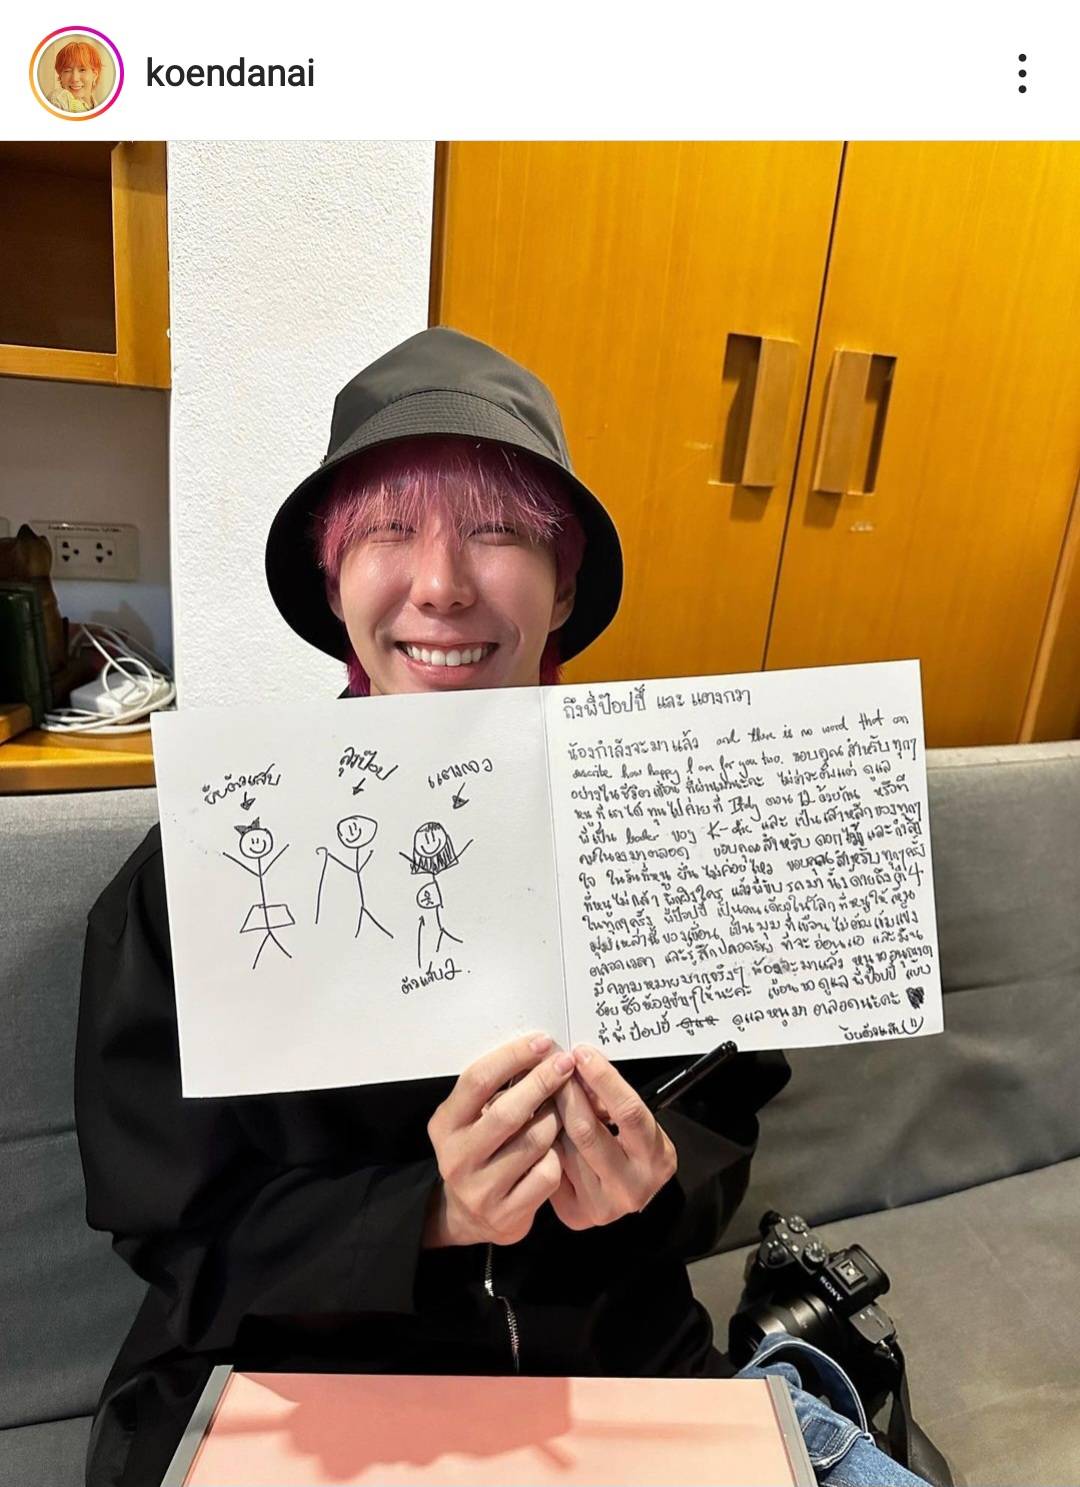 koendanai
ถึงพี่ป๊อปปี้ และ แตงกวา
น้องกำลังจะมาแล้ว and there is no word that can
describe how happy I am for you two. ขอบคุณสำหรับทุกๆ
อย่างในชีวิตเขื่อน ที่ผ่านมานะคะ ไม่ว่าจะตั้งแต่ ดูแล
หนู ที่เราได้ ทุนไปค่ายที่ Italy ตอน 12 ด้วยกัน หรือที่
พี่เป็น leader ของ K-otic และ เป็นเสาหลักของทุกๆ
คนในวงมาตลอด ขอบคุณสำหรับ ดอกไม้ และกำลัง
ใจ ในวันที่หนู ยืนไม่ค่อยไหว ขอบคุณสำหรับทุกๆครั้ง
ที่หนูไม่กล้า พึ่งพิงใคร แล้วพี่ขับรถมา
ในทุกๆครั้ง พี่ป๊อปปี้ เป็นคนเดียวในโลกที่หนูให้เห็น
มุมเหล่านี้ของเขื่อน เป็นมุม ที่เขื่อน ไม่ต้องเข้มแข็ง
ตลอดเวลา และรู้สึกปลอดภัย ที่จะอ่อนแอ และมัน
มีความหมายมากจริงๆ น้องจะมาแล้ว หนูขออนุญาต
ช้อย ซื้อของ ให้นะคะ เขื่อนขอดูแล พี่ป๊อปปี้ แบบ
ที่ พี่ ป๊อปปี้ ดูแลหนูมา ตลอดนะคะ
ยัยตัวแสบ
ยัยตัวแสบ
ลุงป๊อป
แตงกวา
ตัวแสบ2.
SONY